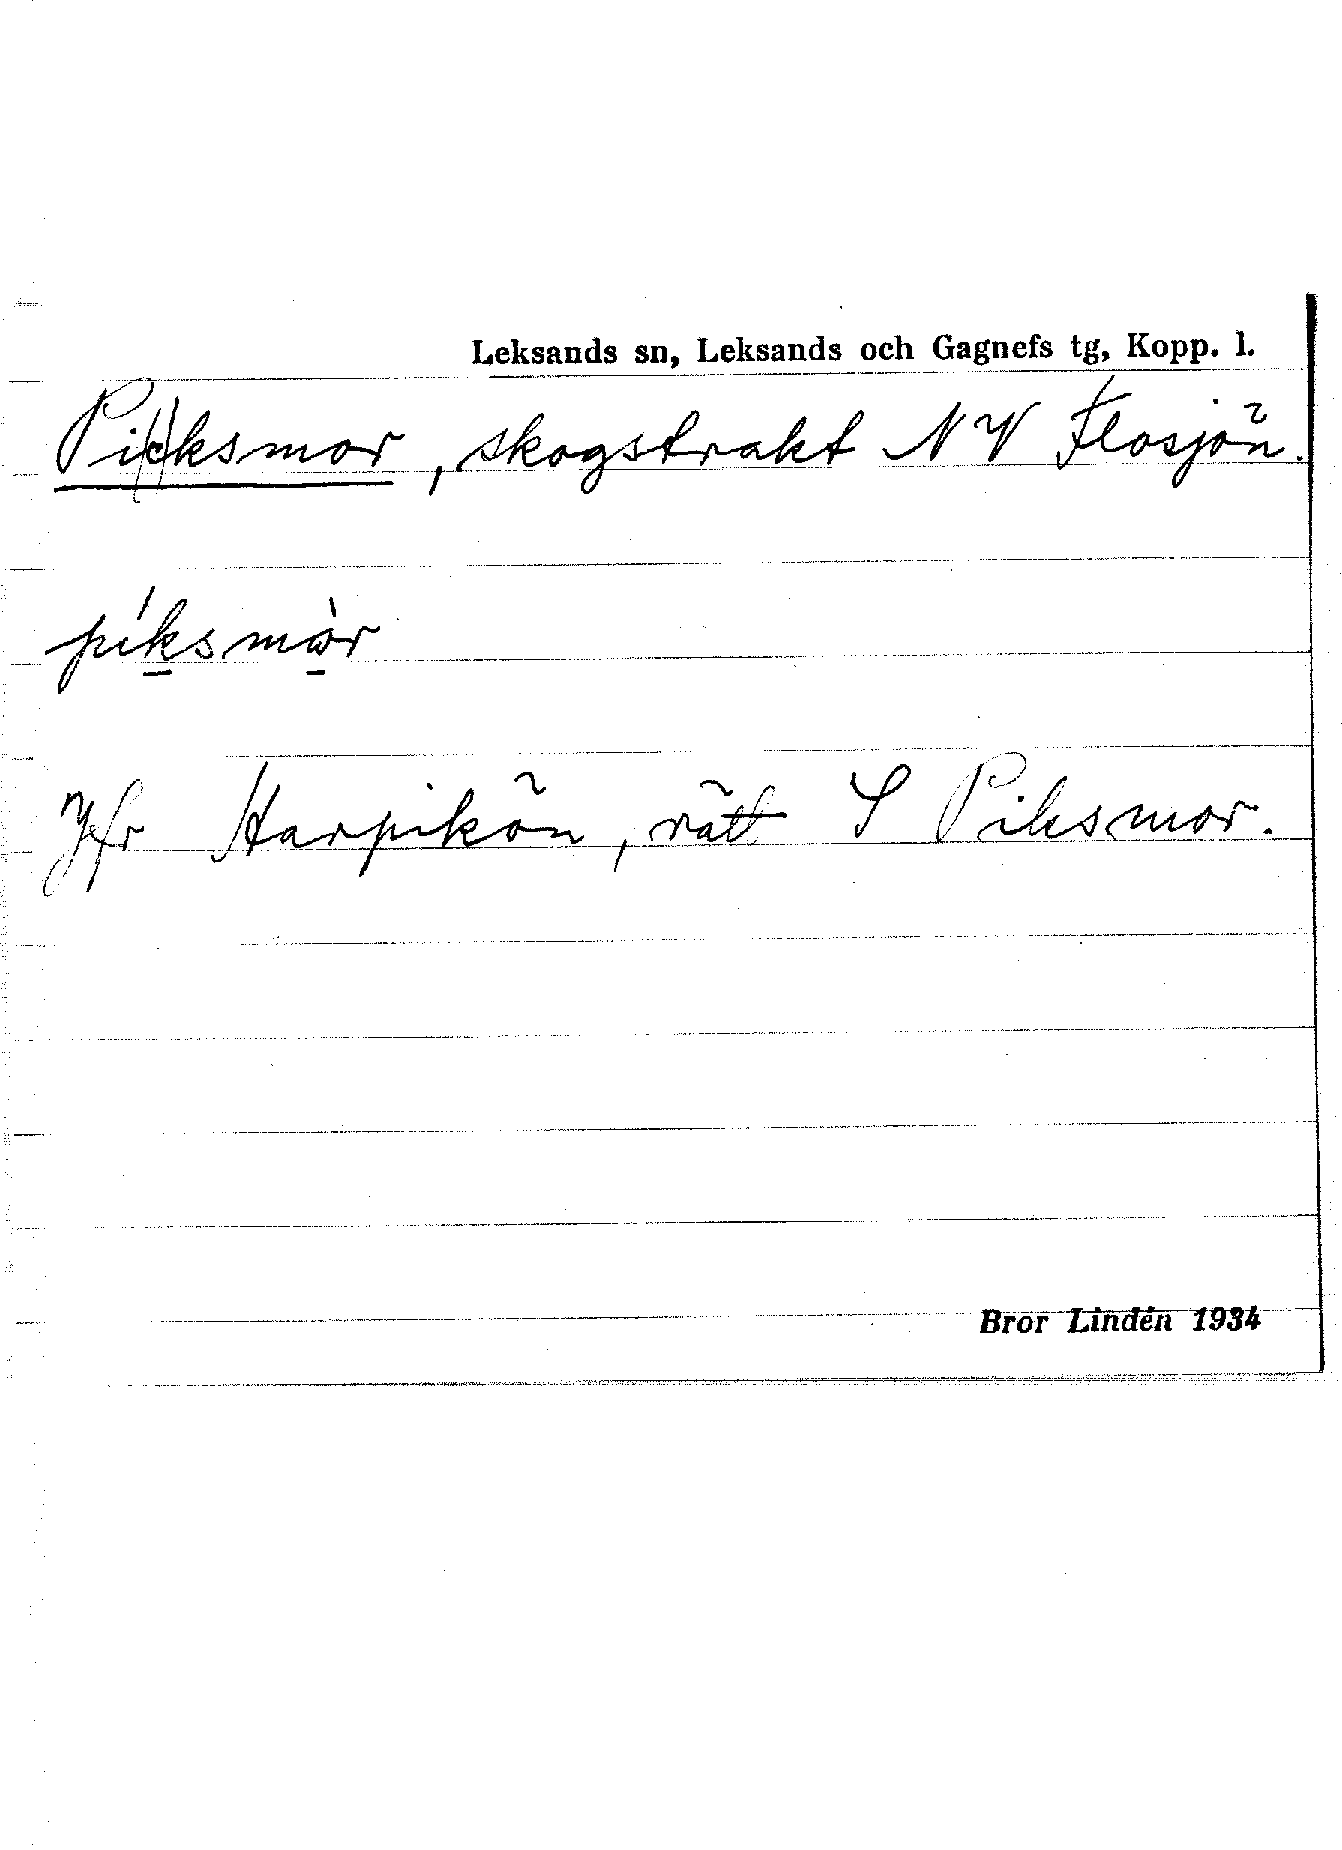 Leksands sn, Leksands och Gagnefs tg, Kopp. l.
Pi(c)ksmor, skogstrakt NV Flosjön.
píksmòr
Jfr Harpikön, rätt S Piksmor.
Bror Lindén 1934